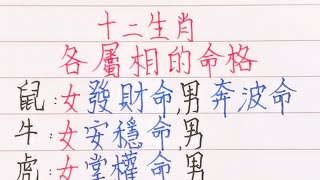 十二生肖
各屬相的命格
鼠:女發財命,男奔波命
牛:女安穩命,男
虎:女掌權命,男